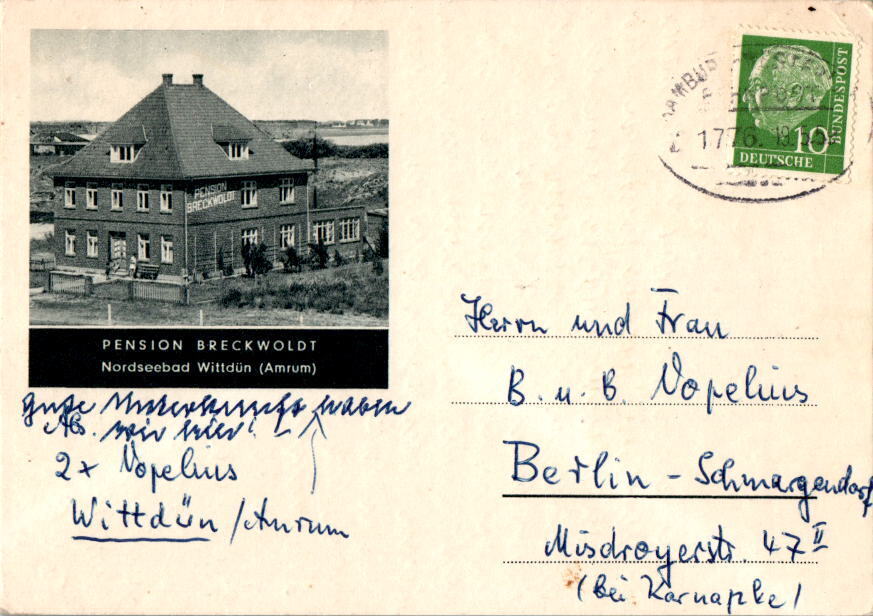 PENSION
BRECKWOLDT
PENSION BRECKWOLDT
Nordseebad Wittdün (Amrum)
gute Unterkunft haben
Abs. wir hier! -
2x Vopelius
Wittdün / Amrum
DEUTSCHE
BUNDESPOST
10
1776
Herrn und Frau
B. u. B. Vopelius
Berlin - Schmargendorf
Misdroyerstr. 47 II
(bei Karnapke)